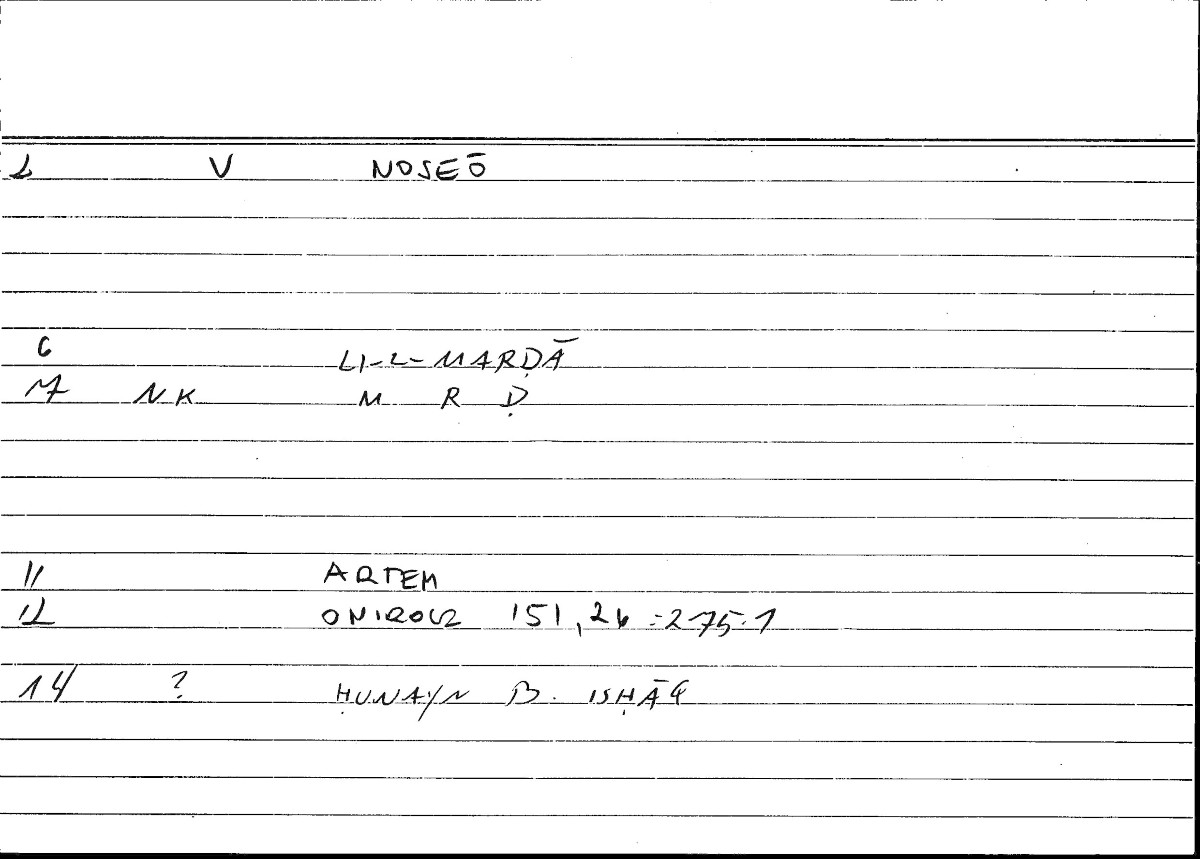 2 V NOSEŌ
6 LI-L-MARḌĀ
7 NK M R Ḍ
11 ARTEM
12 ONIROCR 151,26 = 275.1
14 ? ḤUNAYN B. ISḤĀQ